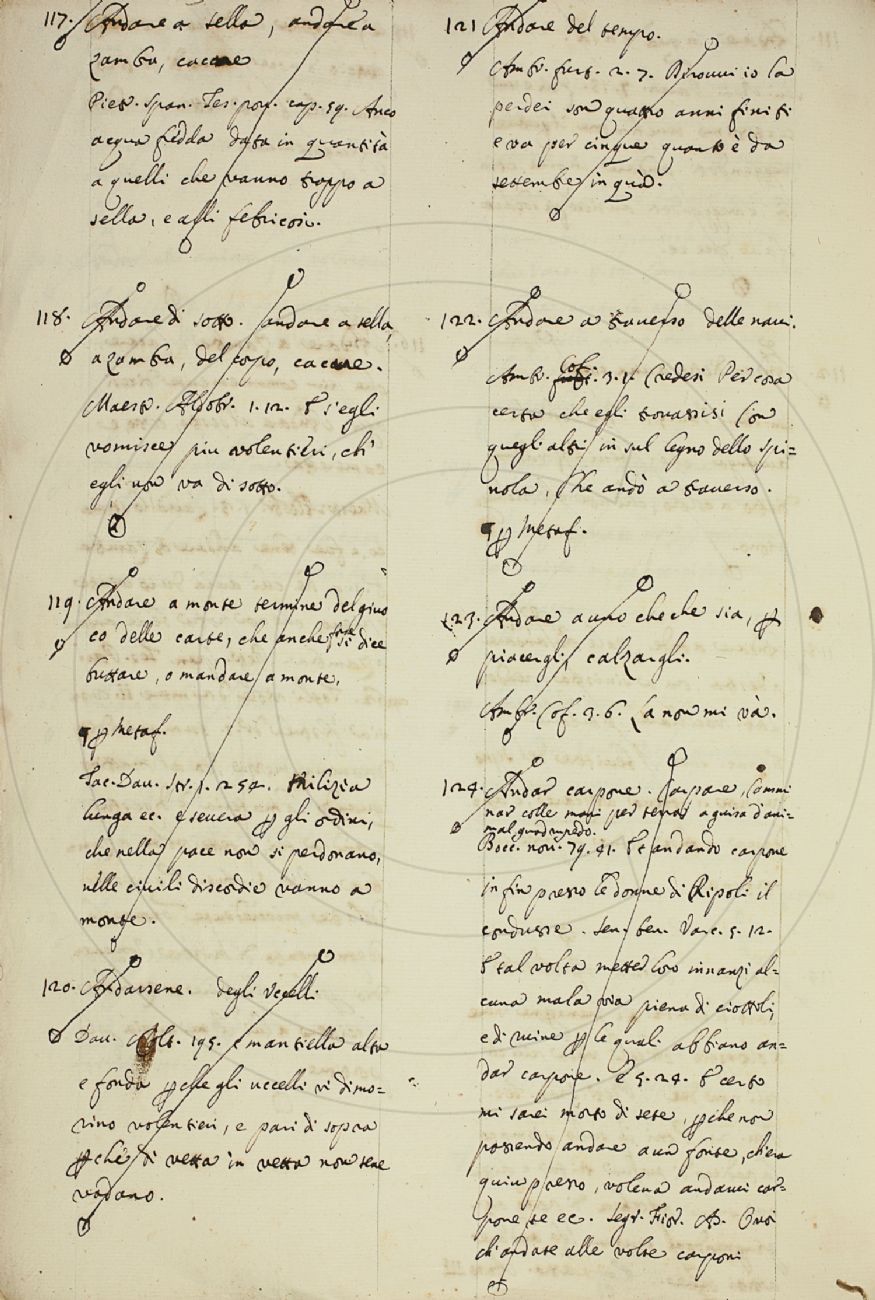 117. Andare a sella, andare a
zamba, cacare
Piet. Span. Tes. pov. cap. 59. Anco
acqua fredda data in quantità
a quelli che vanno troppo a
sella, e agli febricosi.
118. Andare di sotto. andare a sella,
a zamba, del copo, cacare.
Maestr. Aldobr. 1. 12. E s'egli
vomisce più volentieri, ch'
egli non va di sotto.
119. Andare a monte termine del giuo
co delle carte, che anche si dice
buttare, o mandare a monte.
¶ p Metaf.
Tac. Dav. Str. p. 252. Milizia
lunga ec. e severa p gli ordini,
che nella pace non si perdonano,
nelle civili discordie vanno a
monte.
120. Andarsene. degli Vccelli
Dav. Colt. 195. e mantiella alta
e fonda pche gli uccelli vi dimo=
rino volentieri, e pari di sopra
pchè di vetta in vetta non sene
vadano.
121 Andare del tempo.
Ambr. furt. 2. 7. Birouvi io la
perdei son quattro anni finiti
e va per cinque quanto è da
settembre in quà.
122. Andare a traverso delle navi.
Ambr. Cof. 3. 1. Credesi Per cosa
certa che egli trovassisi Con
quegli altri in sul legno dello Spi=
nola, Che andò a traverso.
¶ p Metaf.
123. Andare a uno che che sia, p
piacergli, calzargli.
Ambr. Cof. 3. 6. La non mi và.
124. Andar carpone. Carpare, Cammi
nar colle mani per terra a guisa d'ani=
mal quadrupedo.
Bocc. nov. 79. 41. Et andando carpone
infin presso le donne di Ripoli il
condusse. Sen. ben. Varc. 5. 12.
E tal volta metter loro innanzi al=
cuna mala via piena di ciottoli,
e di mine p le quali abbiano an=
dar carpone. E 5. 24. E certo
mi sarei morto di sete, pche non
possendo andare a un fonte, ch'era
quivi presso, voleva andarvi car=
pone se ec. Segr. Fior. As. Onde
ch'andate alle volte carponi